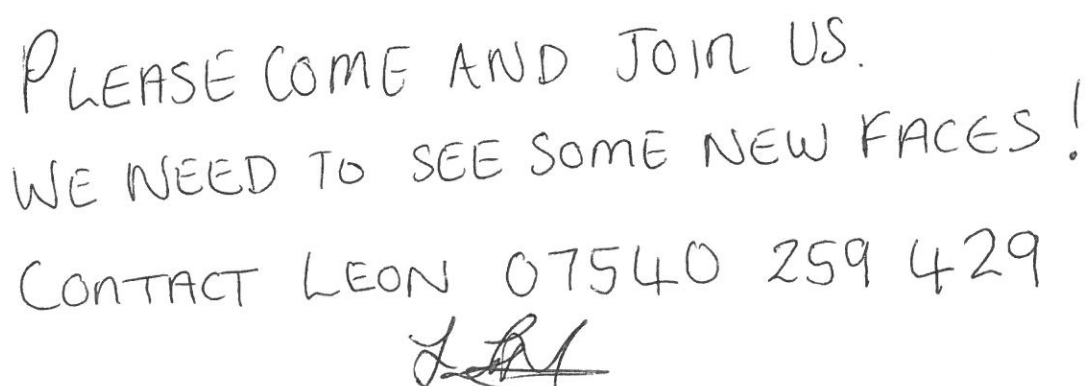 PLEASE COME AND JOIN US.
WE NEED TO SEE SOME NEW FACES!
CONTACT LEON 07540 259 429